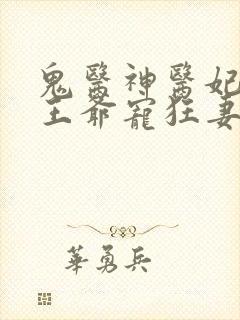 鬼醫神醫妃
王爺寵狂妻
華勇兵